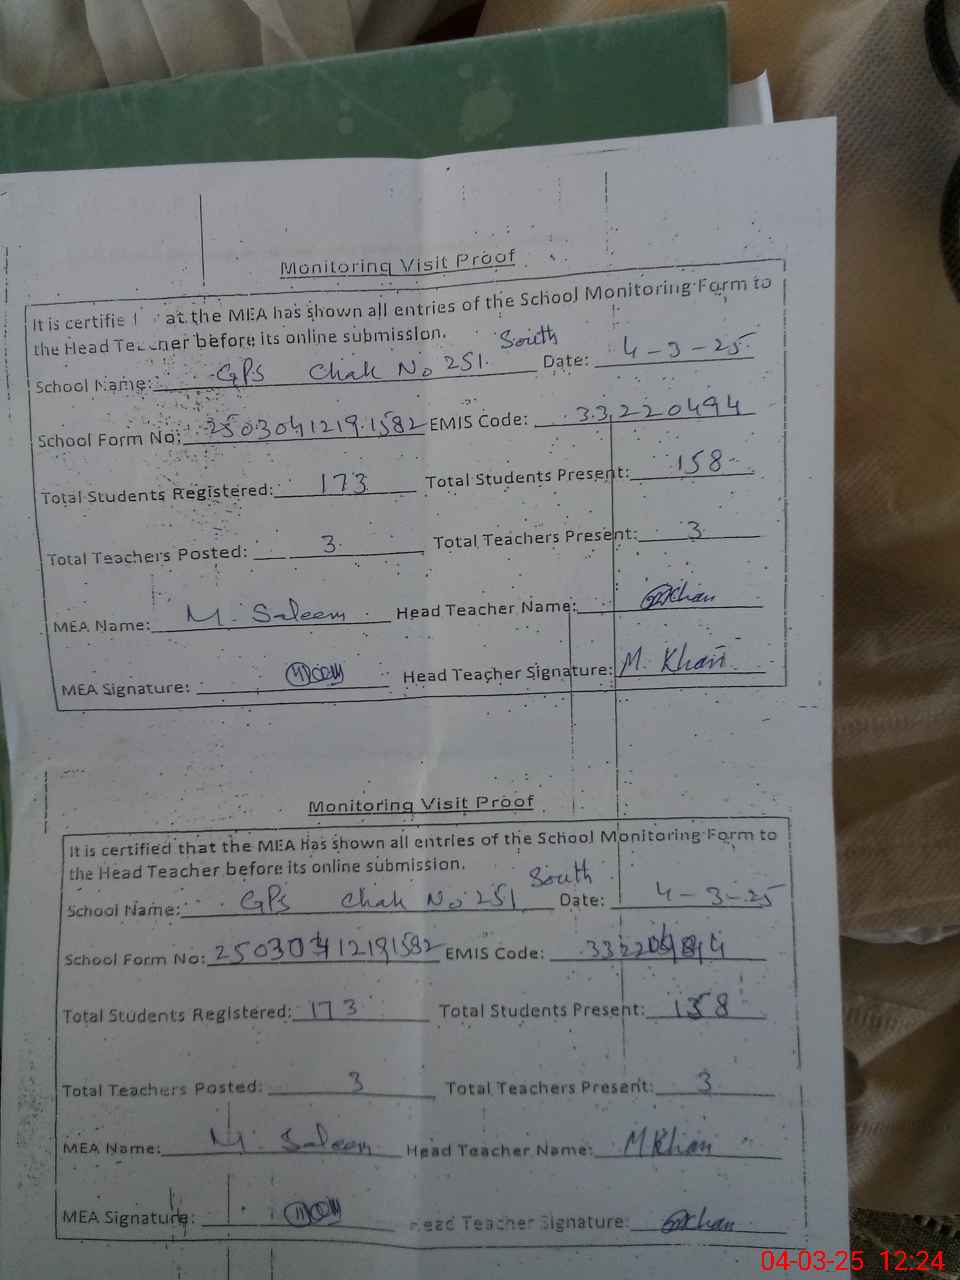 Monitoring Visit Proof
It is certifie at the MEA has shown all entries of the School Monitoring Form to
the Head Teacher before its online submission.
School Name: GPS Chak No 251 South Date: 4-3-25
School Form No: 25030412191582 EMIS Code: 33220494
Total Students Registered: 173 Total Students Present: 158
Total Teachers Posted: 3 Total Teachers Present: 3
MEA Name: M. Saleem Head Teacher Name: Khan
MEA Signature: Head Teacher Signature: M. Khan
Monitoring Visit Proof
It is certified that the MEA has shown all entries of the School Monitoring Form to
the Head Teacher before its online submission.
School Name: GPS Chak No 251 South Date: 4-3-25
School Form No: 25030412191582 EMIS Code:
Total Students Registered: 173 Total Students Present: 158
Total Teachers Posted: 3 Total Teachers Present: 3
MEA Name: M. Saleem Head Teacher Name: M Khan
MEA Signature: Head Teacher Signature: Khan
04-03-25 12:24